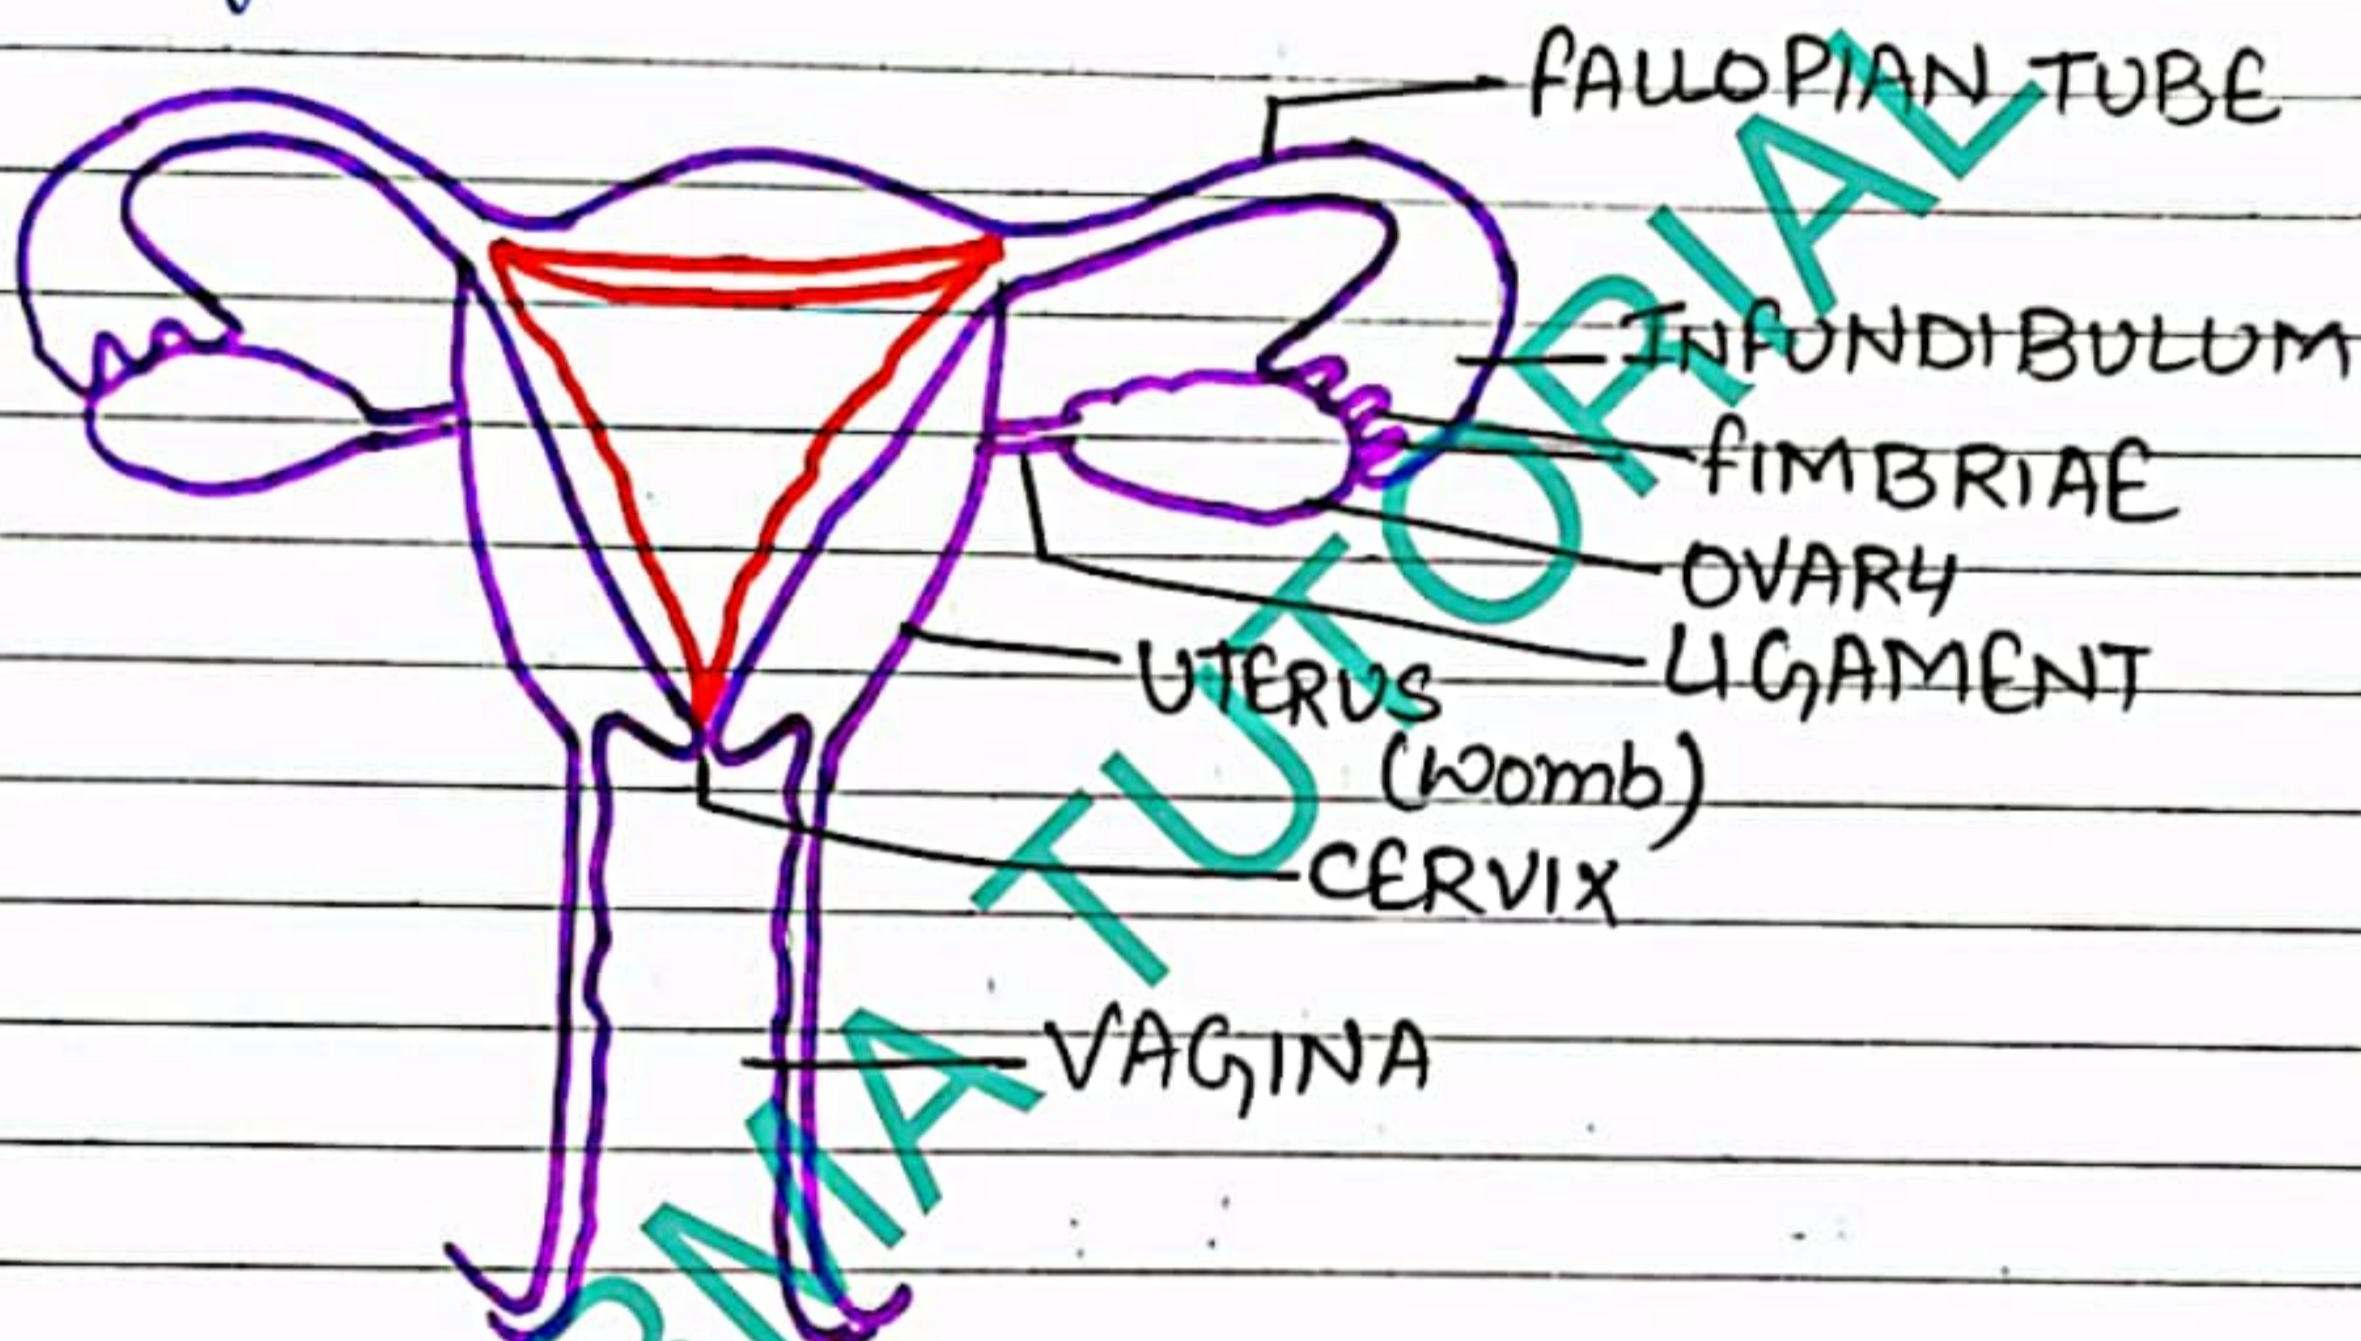 FALLOPIAN TUBE
INFUNDIBULUM
FIMBRIAE
OVARY
LIGAMENT
UTERUS
(Womb)
CERVIX
VAGINA
TUTORIAL